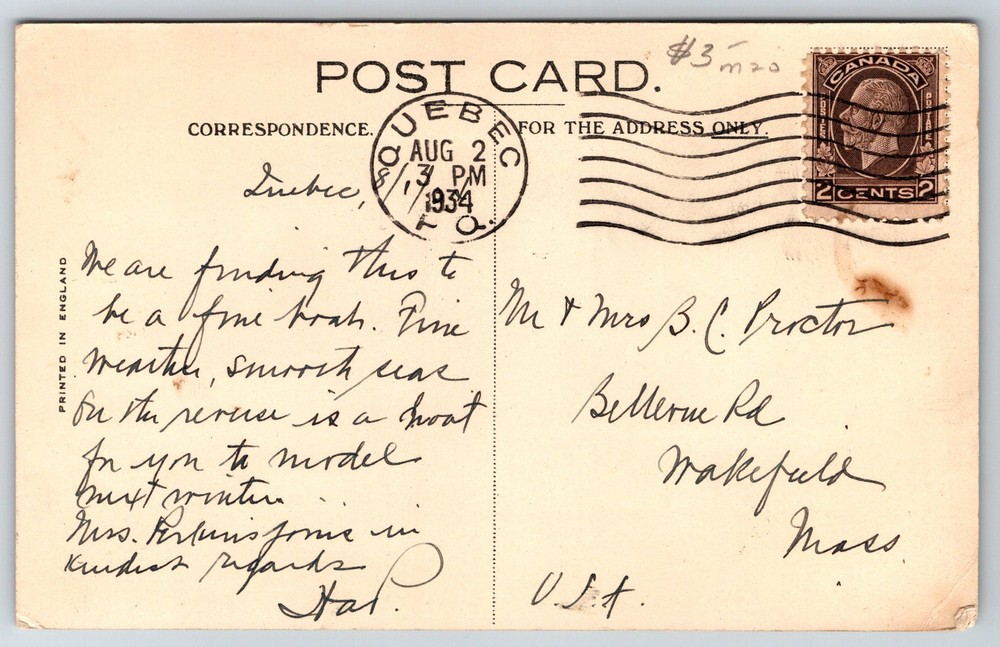 $3-
m20
POST CARD.
CORRESPONDENCE.
FOR THE ADDRESS ONLY.
QUEBEC
AUG 2
3 PM
1934
P. Q.
CANADA
POSTES
POSTAGE
2 CENTS 2
PRINTED IN ENGLAND
Quebec, 8/1/34
We are finding this to
be a fine boat. Fine
weather, smooth seas
On the reverse is a boat
for you to model
next winter.
Mrs. Perkins joins in
kindest regards
Mr & Mrs B. C. Proctor
Bellevue Rd
Wakefield
Mass.
U.S.A.